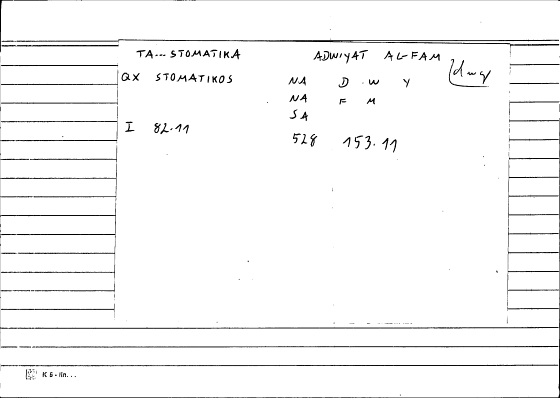 TA... STOMATIKA ADWIYAT AL-FAM drug
QX STOMATIKOS NA D W Y
NA F M
SA
I 82.11 528 153.11
K 6 - lin...